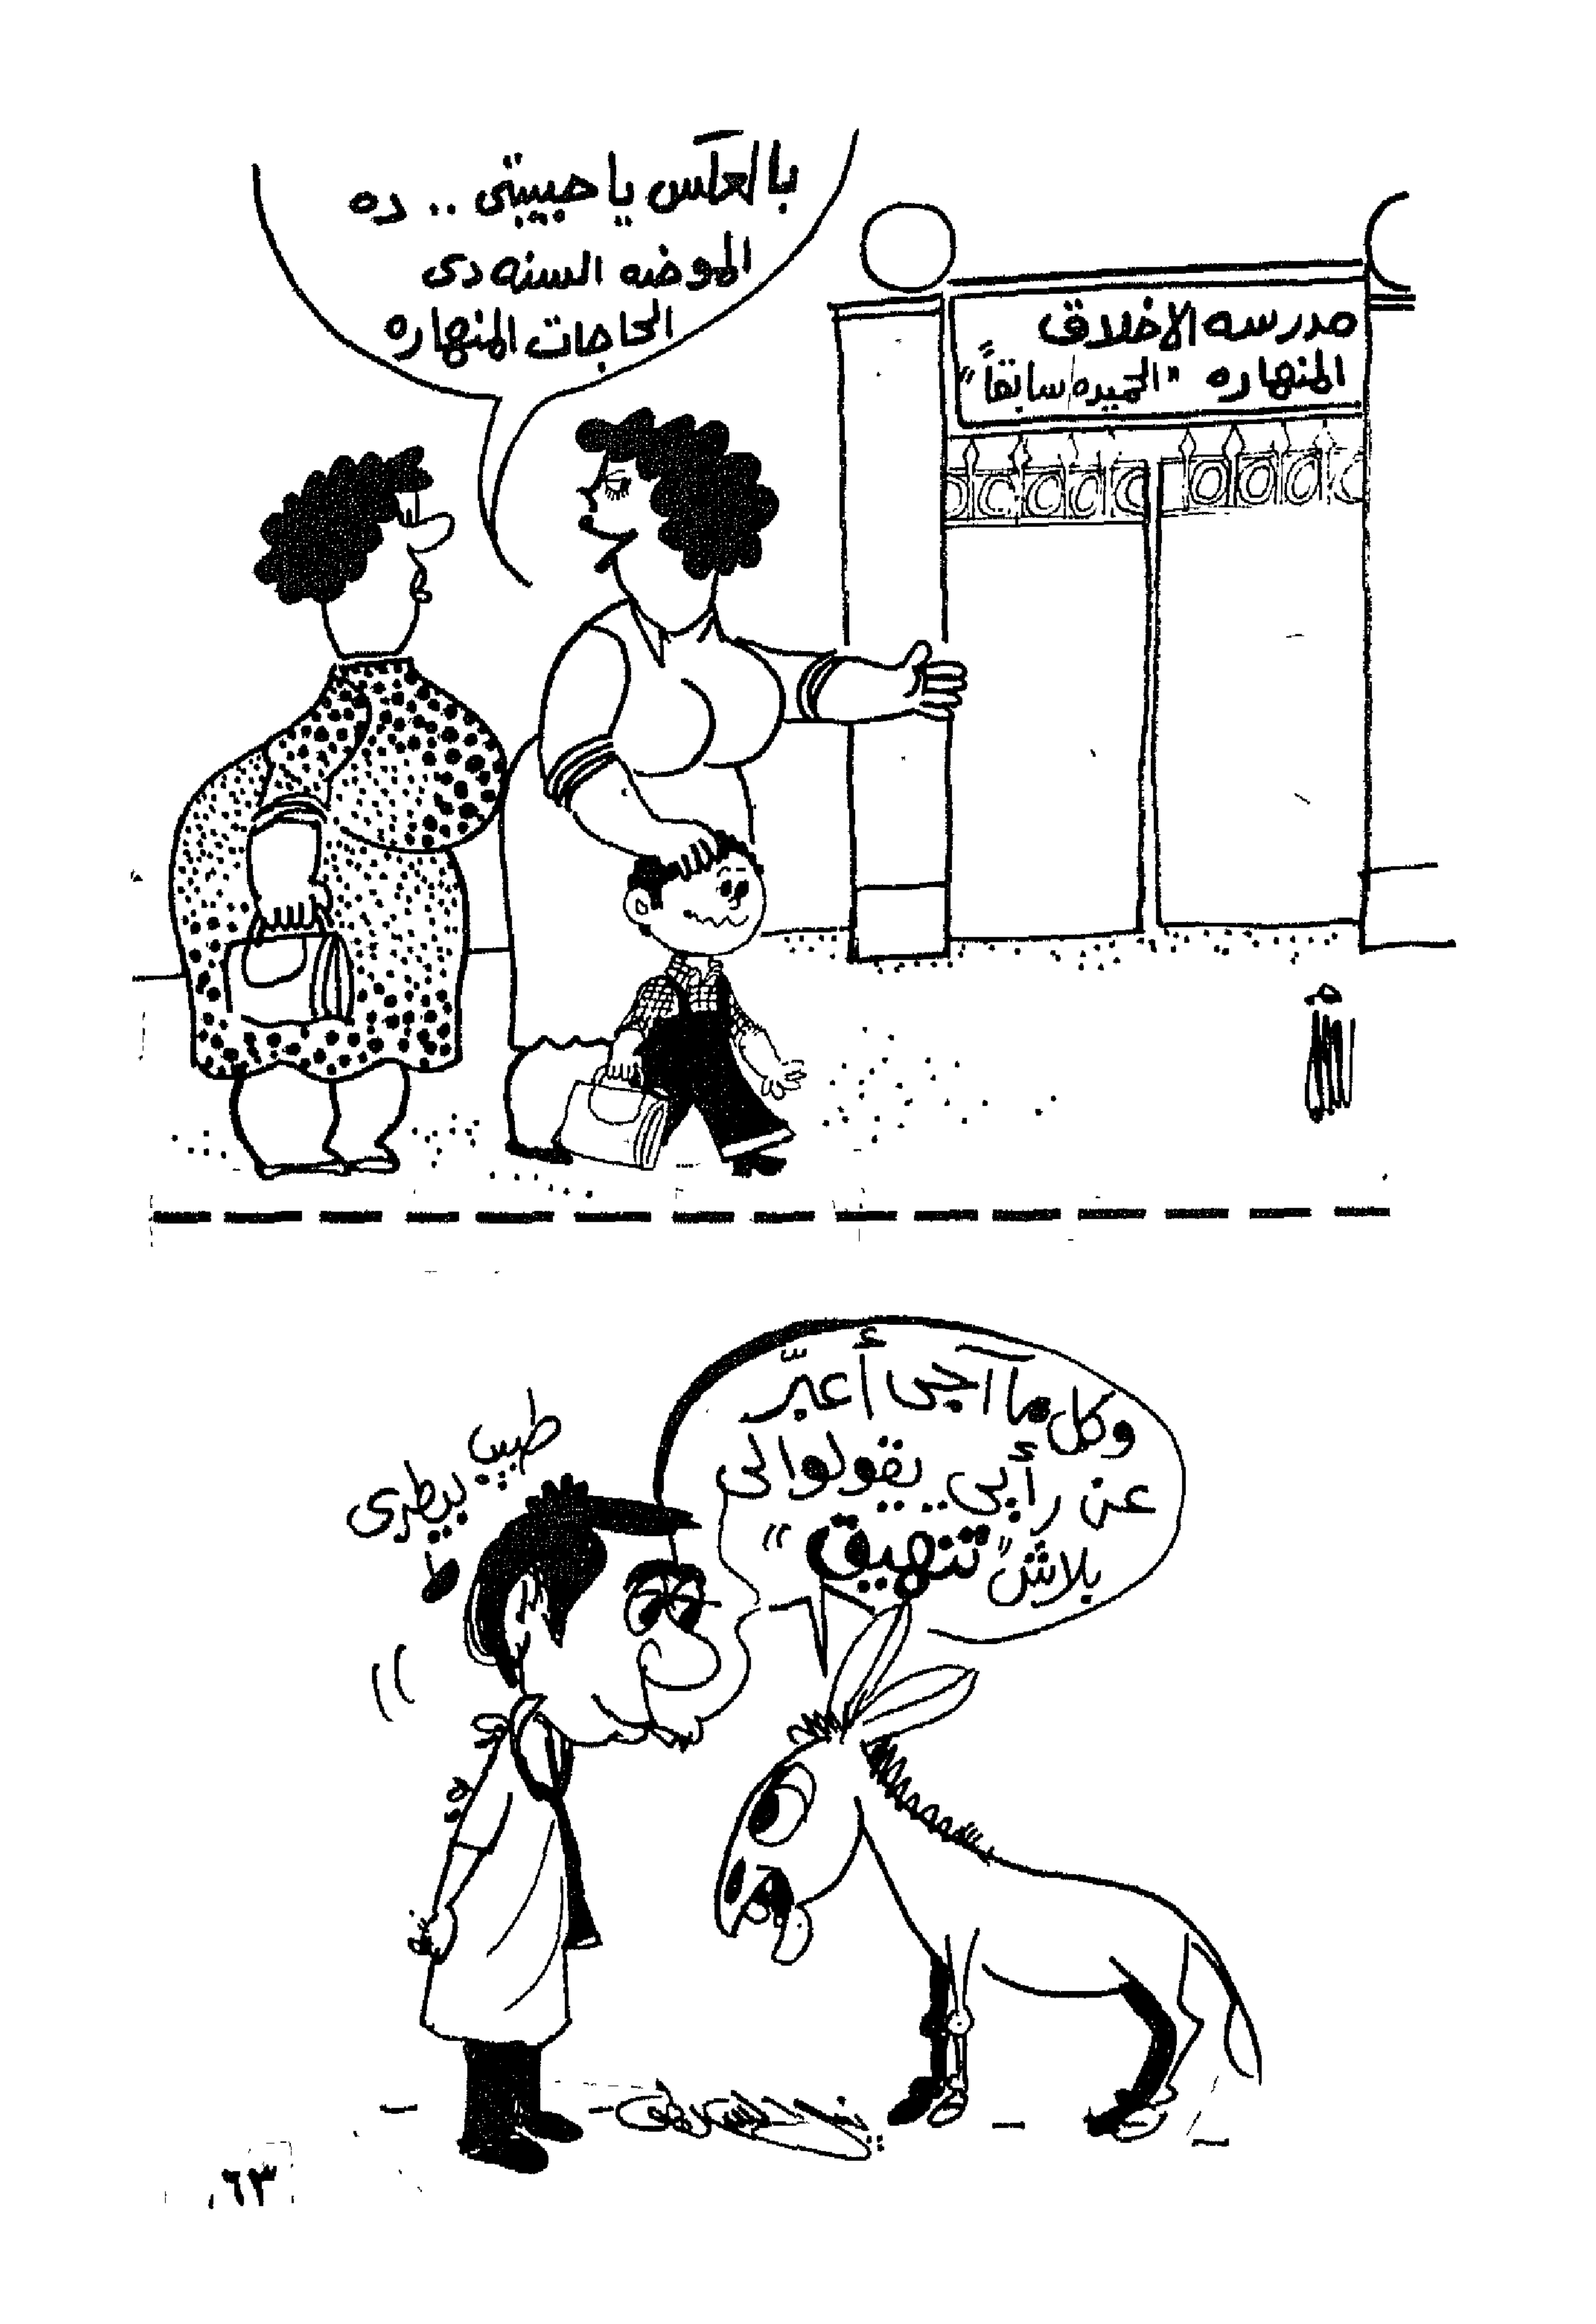 بالعكس يا حبيبتى .. ده
الموضه السنه دى
الحاجات المنهاره
مدرسه الاخلاق
المنهاره "الحميده سابقاً"
وكل ما آجى أعبّر
عن رأيى .. يقولوا لى
بلاش "تنهيق"
طبيب
بيطرى
٦٣